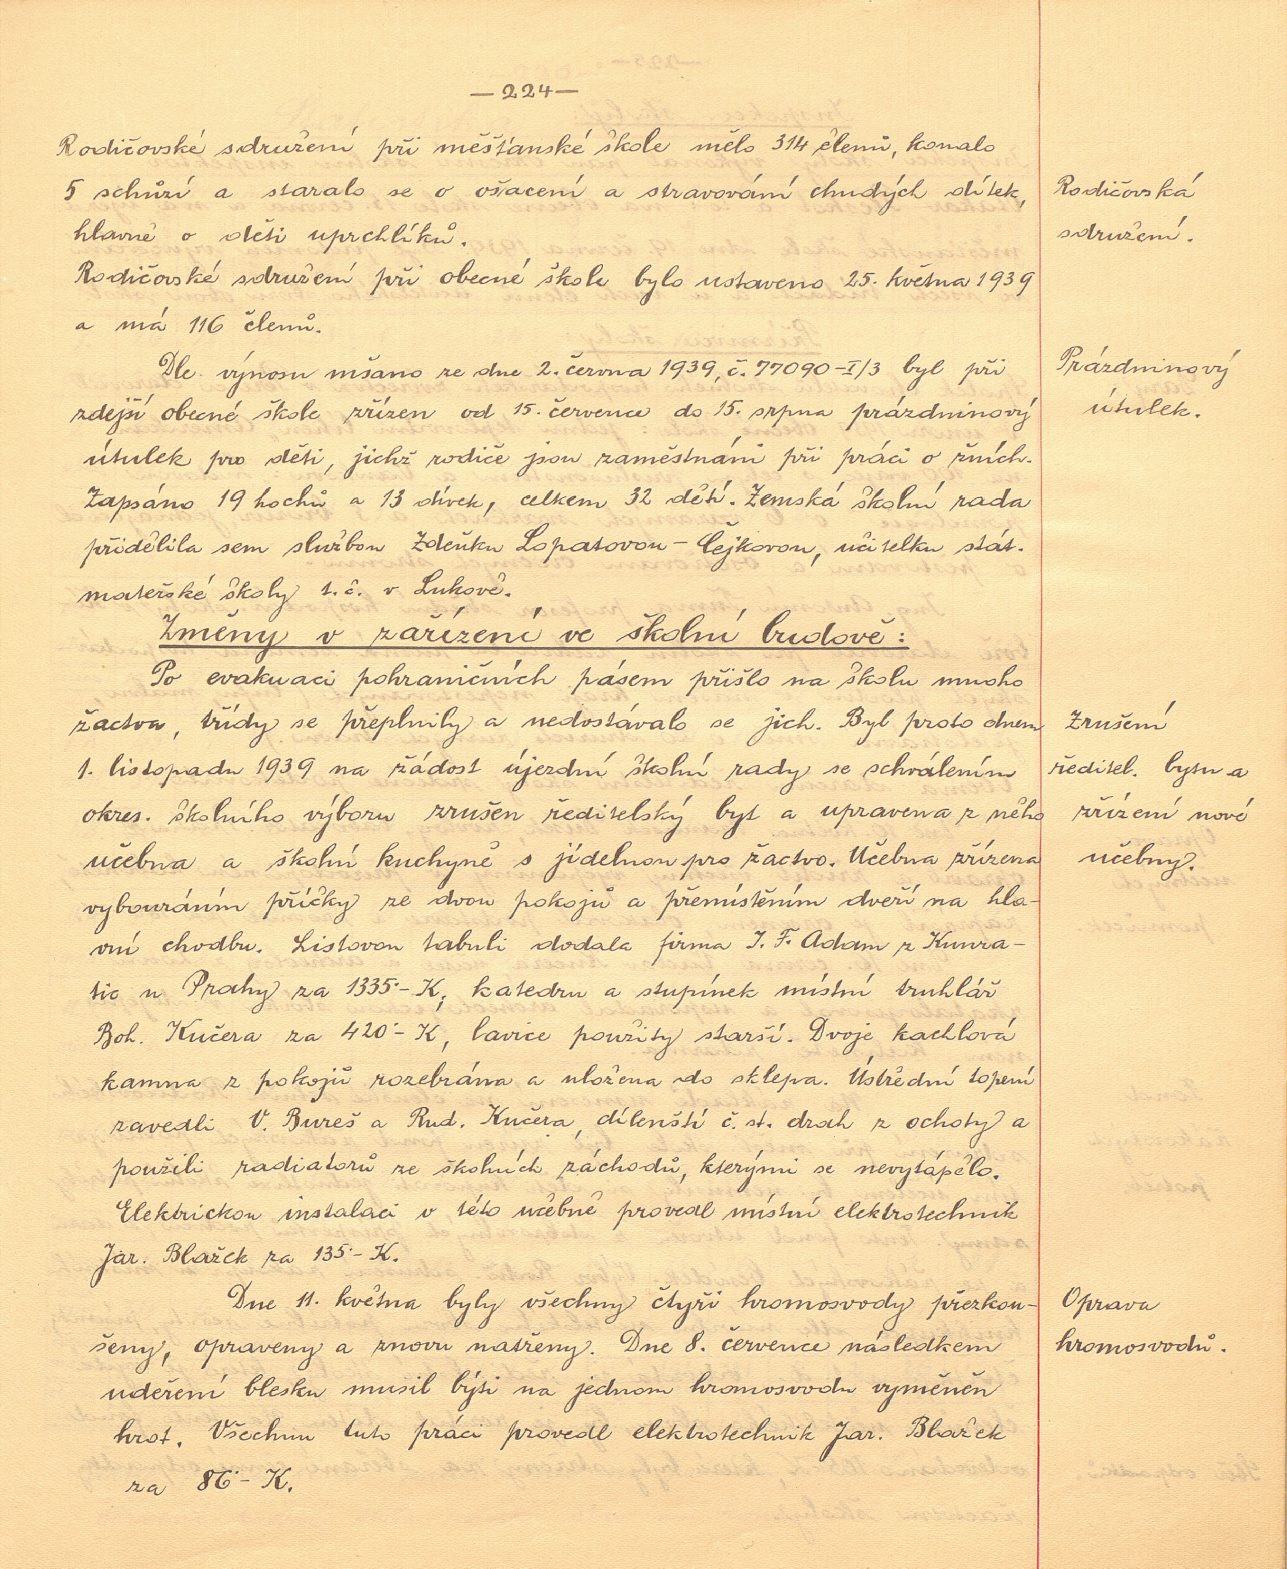 —224—
Rodičovské sdružení při měšťanské škole mělo 314 členů, konalo
5 schůzí a staralo se o ošacení a stravování chudých dítek,
hlavně o děti uprchlíků.
Rodičovská
sdružení.
Rodičovské sdružení při obecné škole bylo ustaveno 25. května 1939
a má 116 členů.
Dle výnosu mšano ze dne 2. června 1939, č. 77090-I/3 byl při
zdejší obecné škole zřízen od 15. července do 15. srpna prázdninový
útulek pro děti, jichž rodiče jsou zaměstnáni při práci o žních.
Prázdninový
útulek.
Zapsáno 19 hochů a 13 dívek, celkem 32 dětí. Zemská školní rada
přidělila sem službou Zdeňku Lopatovou-Čejkovou, učitelku stát.
mateřské školy t. č. v Lukově.
Změny v zařízení ve školní budově:
Po evakuaci pohraničních pásem přišlo na školu mnoho
žactva, třídy se přeplnily a nedostávalo se jich. Byl proto dnem
1. listopadu 1939 na žádost újezdní školní rady se schválením
okres. školního výboru zrušen ředitelský byt a upravena z něho
učebna a školní kuchyně s jídelnou pro žactvo. Učebna zřízena
Zrušení
ředitel. bytu a
zřízení nové
učebny.
vybouráním příčky ze dvou pokojů a přemístěním dveří na hla-
vní chodbu. Listovou tabuli dodala firma J. F. Adam z Kunra-
tic u Prahy za 1335·- K, katedru a stupínek místní truhlář
Boh. Kučera za 420·- K, lavice použity starší. Dvoje kachlová
kamna z pokojů rozebrána a uložena do sklepa. Ústřední topení
zavedli V. Bureš a Rud. Kučera, dílenští č. st. drah z ochoty a
použili radiatorů ze školních záchodů, kterými se nevytápělo.
Elektrickou instalaci v této učebně provedl místní elektrotechnik
Jar. Blažek za 135·- K.
Dne 11. května byly všechny čtyři hromosvody přezkou-
šeny, opraveny a znovu natřeny. Dne 8. července následkem
Oprava
hromosvodů.
udeření blesku musil býti na jednom hromosvodu vyměněn
hrot. Všechnu tuto práci provedl elektrotechnik Jar. Blažek
za 86·- K.